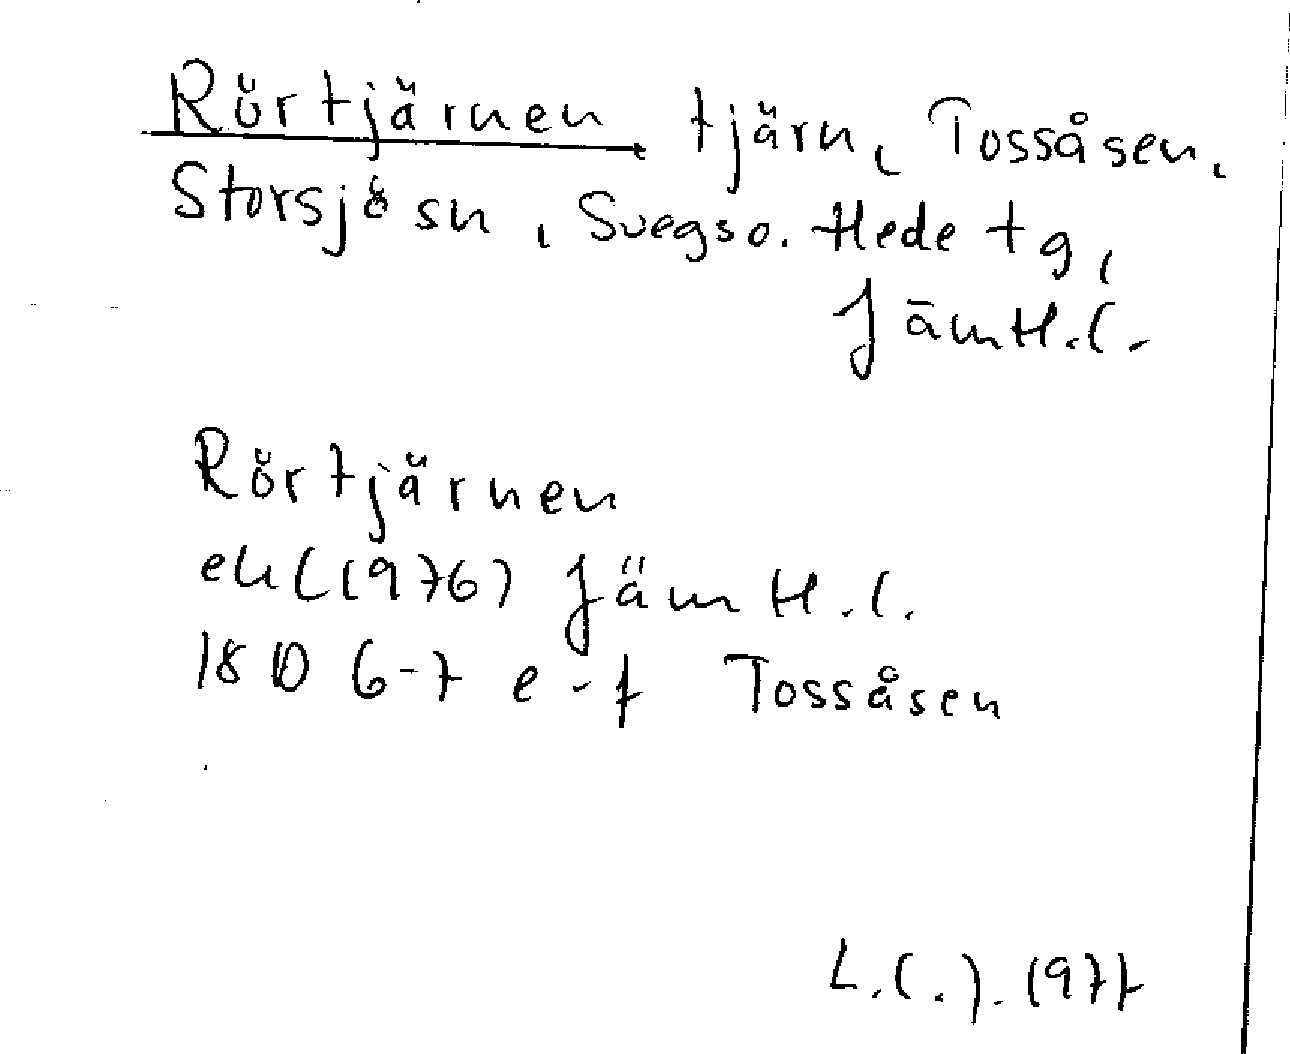 Rörtjärnen tjärn, Tossåsen,
Storsjö sn, Svegs o. Hede tg,
Jämtl.l.
Rörtjärnen
ek (1976) Jämtl.l.
18D 6-7 e-f Tossåsen
L.C.J. 1977